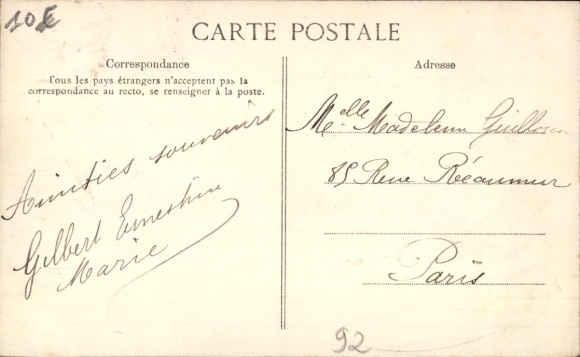 10€
CARTE POSTALE
Correspondance
Tous les pays étrangers n'acceptent pas la
correspondance au recto, se renseigner à la poste.
Amitiés souvenirs
Gilbert Ernestine
Marie
Adresse
Melle Madeleine
85 Rue Réaumur
Paris
92